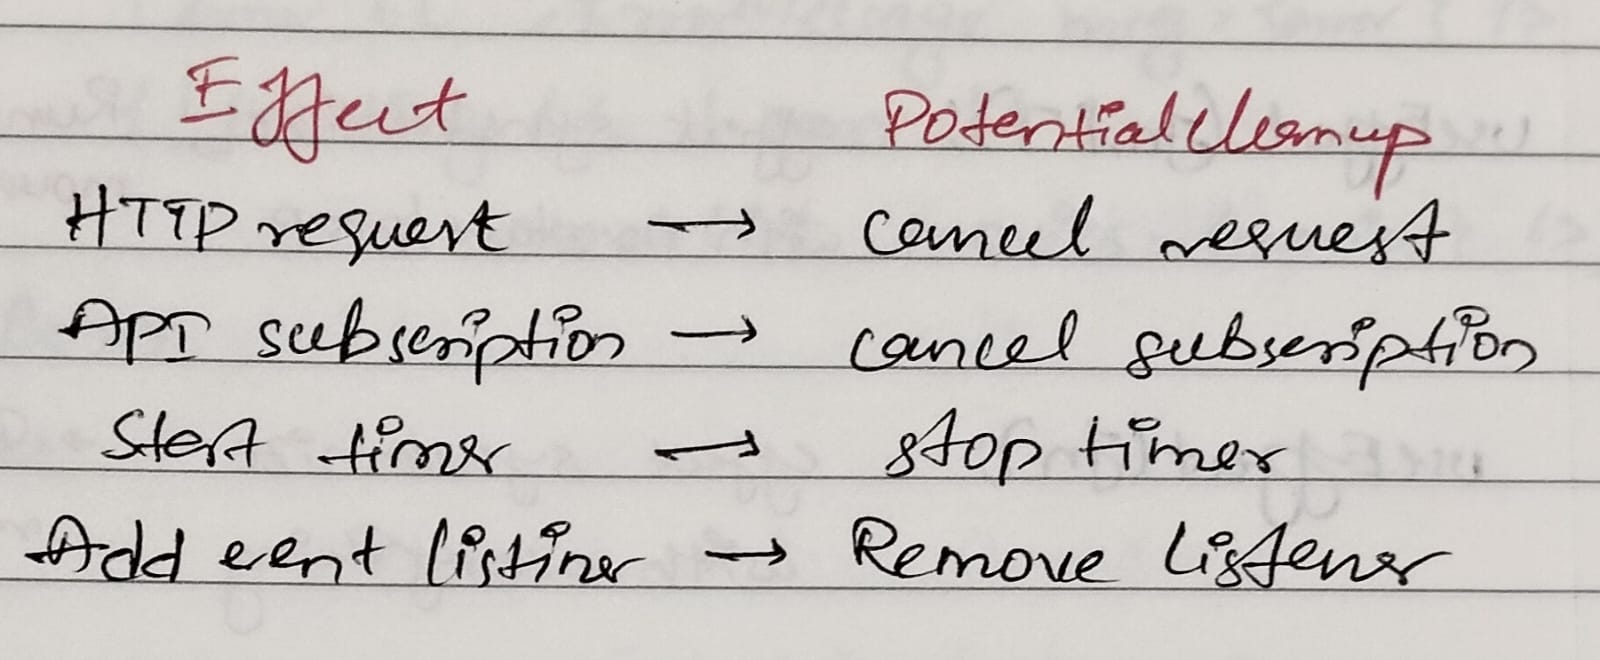 Effect Potential Cleanup
HTTP request → cancel request
API subscription → cancel subscription
Start timer → stop timer
Add event listiner → Remove listener